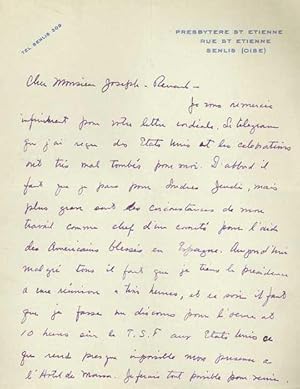 TEL SENLIS 209
PRESBYTERE ST ETIENNE
RUE ST ETIENNE
SENLIS (OISE)
Cher Monsieur Joseph-Renaud -
Je vous remercie
infiniment pour votre lettre cordiale. Le telegram
que j'ai reçu des Etats Unis et les celebrations
ont très mal tombés pour moi. D'abord il
faut que je pars pour Londres Jeudi, mais
plus grave sont des circonstances de mon
travail comme chef d'un comité pour l'aide
des Americains blessés en Espagne. Aujourd'hui
malgré tous il faut que je tiens la présidence
a une réunion a heures, et ce soir il faut
que je fasse un discours pour l'oeuvre at
10 heures sur la T.S.F aux Etats Unis ce
que rende presque impossible mon presence a
l'Hotel de Je ferais tout posible pour venir